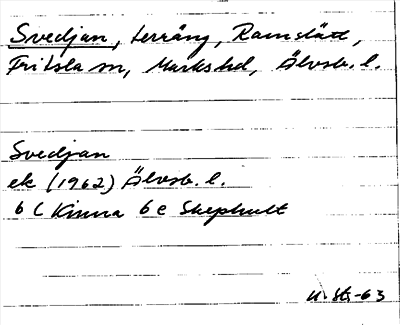 Svedjan, terräng, Ramslätt,
Fritsla sn, Marks hd, Älvsb. l.
Svedjan
ek (1962) Älvsb. l.
6 C Kinna 6 e Skephult
-63